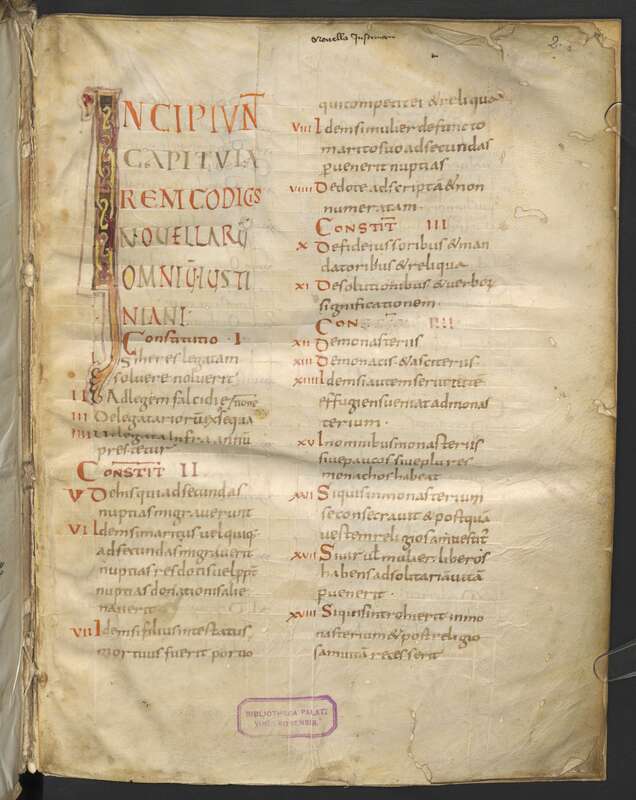 Novella Justinian
2.
INCIPIUNT
CAPITULA
REM CODICIS
NOVELLARŪ
OMNIŪ IUSTI
NIANI
Constitutio I
I Si heres legatam
solvere noluerit
II Ad legem falcidie
III De legatariorū
IIII
CONSTIT II
V De his qui ad secundas
nuptias migraverunt
VI Idem si maritus vel quisq;
ad secundas migraverit
nuptias res dotis vel
nuptias donationis alie
naverit
VII Idem si filius intestatus
mortuus fuerit portio
qui competit ei & reliqua
VIII Idem si mulier defuncto
marito suo ad secundas
pvenerit nuptias
VIIII De dote adscripta & non
numeratam
CONSTIT III
X De fideiussoribus & man
datoribus & reliqua
XI De solutionibus & verboꝝ
significationem
CONS IIII
XII De monasteriis
XIII De monacis & asciteriis
XIIII Idem si autem servitute
effugiens veniat ad monas
terium
XV In omnibus monasteriis
sive paucos sive plures
monachos habeat
XVI Si quis in monasterium
se consecravit & postquā
vestem religiosam
XVII Si vir vel mulier liberos
habens ad solitariā vitā
pvenerit
XVIII Si quis introierit in mo
nasterium & post religio
sam vitā recesserit
BIBLIOTHECA PALAT.
VINDOBONENSIS